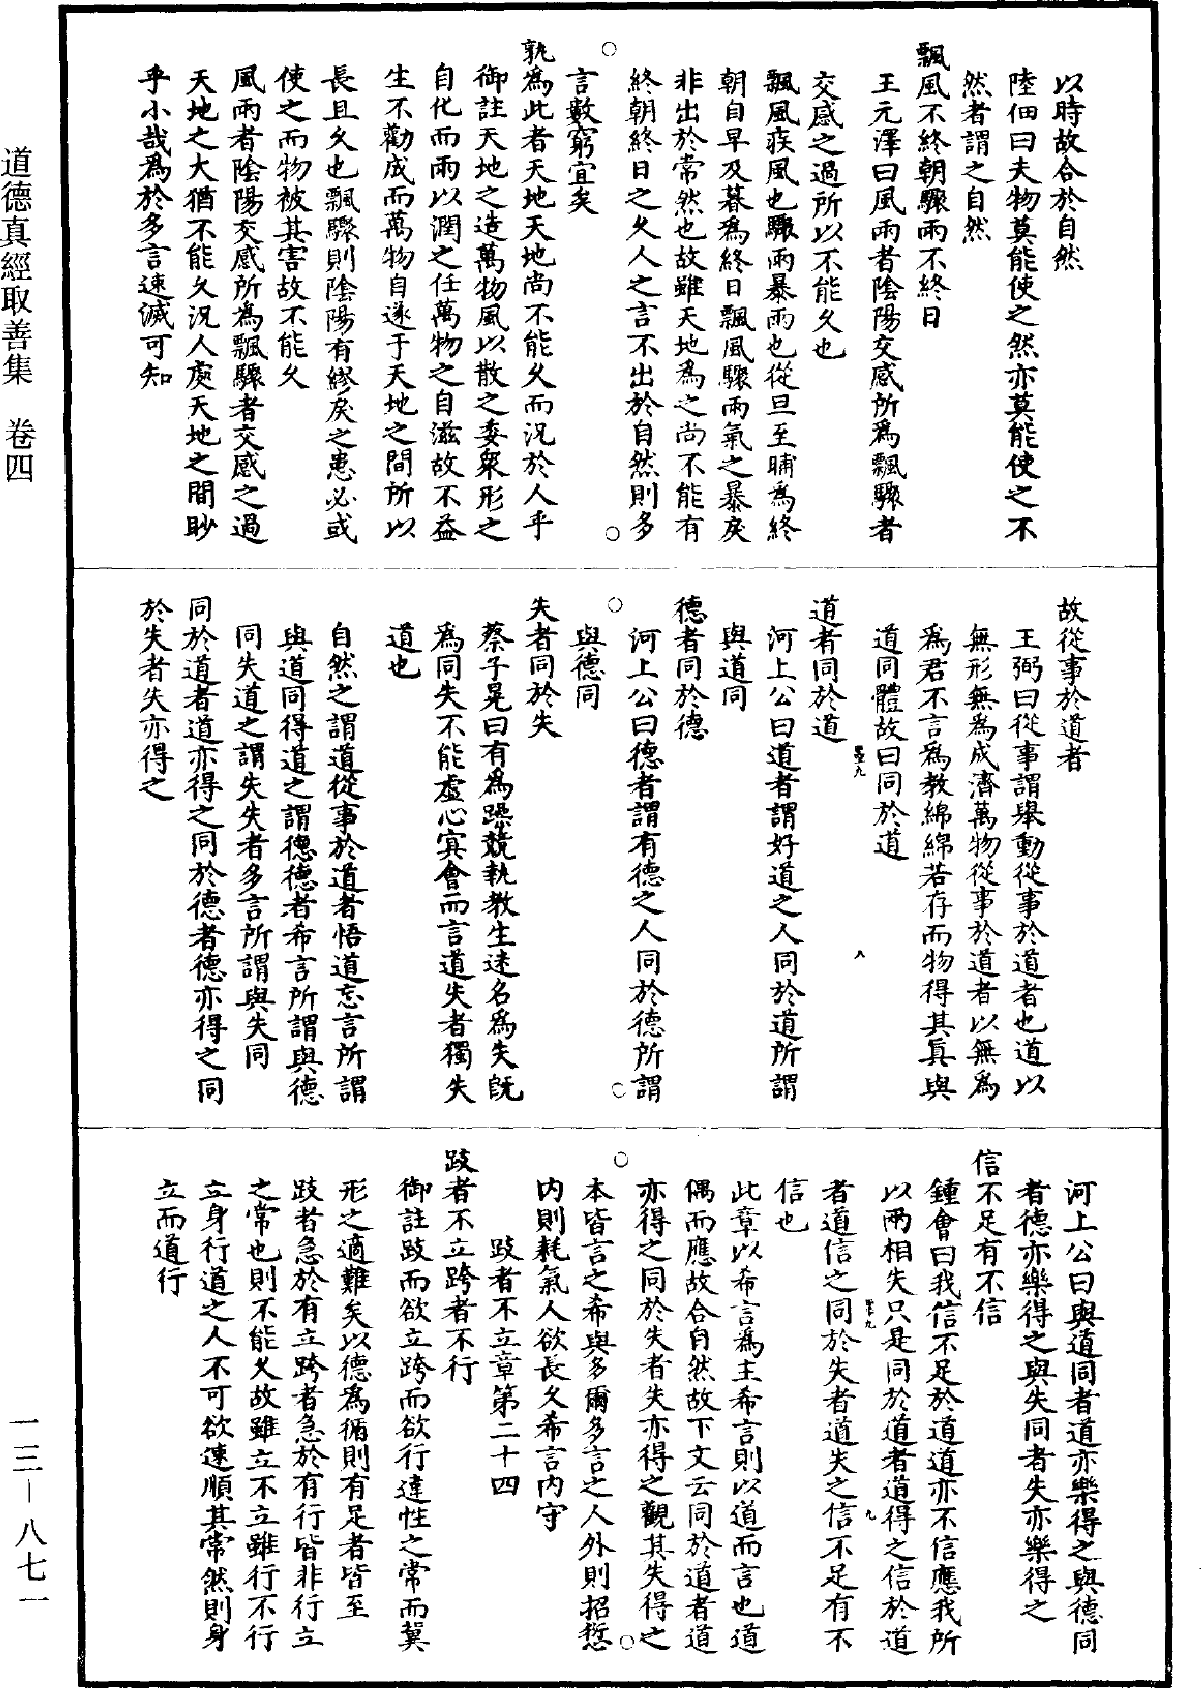 道德真經取善集　卷四
以時故合於自然
陸佃曰夫物莫能使之然亦莫能使之不
然者謂之自然
飄風不終朝驟雨不終日
王元澤曰風雨者陰陽交感所爲飄驟者
交感之過所以不能久也
飄風疾風也驟雨暴雨也從旦至晡爲終
朝自早及暮爲終日飄風驟雨氣之暴戾
非出於常然也故雖天地爲之尚不能有
終朝終日之久人之言不出於自然則多
言數窮宜矣
孰爲此者天地天地尚不能久而況於人乎
御註天地之造萬物風以散之委衆形之
自化而雨以潤之任萬物之自滋故不益
生不勸成而萬物自遂于天地之間所以
長且久也飄驟則陰陽有繆戾之患必或
使之而物被其害故不能久
風雨者陰陽交感所爲飄驟者交感之過
天地之大猶不能久況人處天地之間眇
乎小哉爲於多言速滅可知
故從事於道者
王弼曰從事謂舉動從事於道者也道以
無形無爲成濟萬物從事於道者以無爲
爲君不言爲教綿綿若存而物得其真與
道同體故曰同於道
道者同於道
河上公曰道者謂好道之人同於道所謂
與道同
德者同於德
河上公曰德者謂有德之人同於德所謂
與德同
失者同於失
蔡子晃曰有爲躁競執教生迷名爲失既
爲同失不能虛心冥會而言道失者獨失
道也
自然之謂道從事於道者悟道忘言所謂
與道同得道之謂德德者希言所謂與德
同失道之謂失失者多言所謂與失同
同於道者道亦得之同於德者德亦得之同
於失者失亦得之
河上公曰與道同者道亦樂得之與德同
者德亦樂得之與失同者失亦樂得之
信不足有不信
鍾會曰我信不足於道道亦不信應我所
以兩相失只是同於道者道得之信於道
者道信之同於失者道失之信不足有不
信也
此章以希言爲主希言則以道而言也道
偶而應故合自然故下文云同於道者道
亦得之同於失者失亦得之觀其失得之
本皆言之希與多爾多言之人外則招愆
内則耗氣人欲長久希言内守
跂者不立章第二十四
跂者不立跨者不行
御註跂而欲立跨而欲行違性之常而冀
形之適難矣以德爲循則有足者皆至
跂者急於有立跨者急於有行皆非行立
之常也則不能久故雖立不立雖行不行
立身行道之人不可欲速順其常然則身
立而道行
一三—八七一